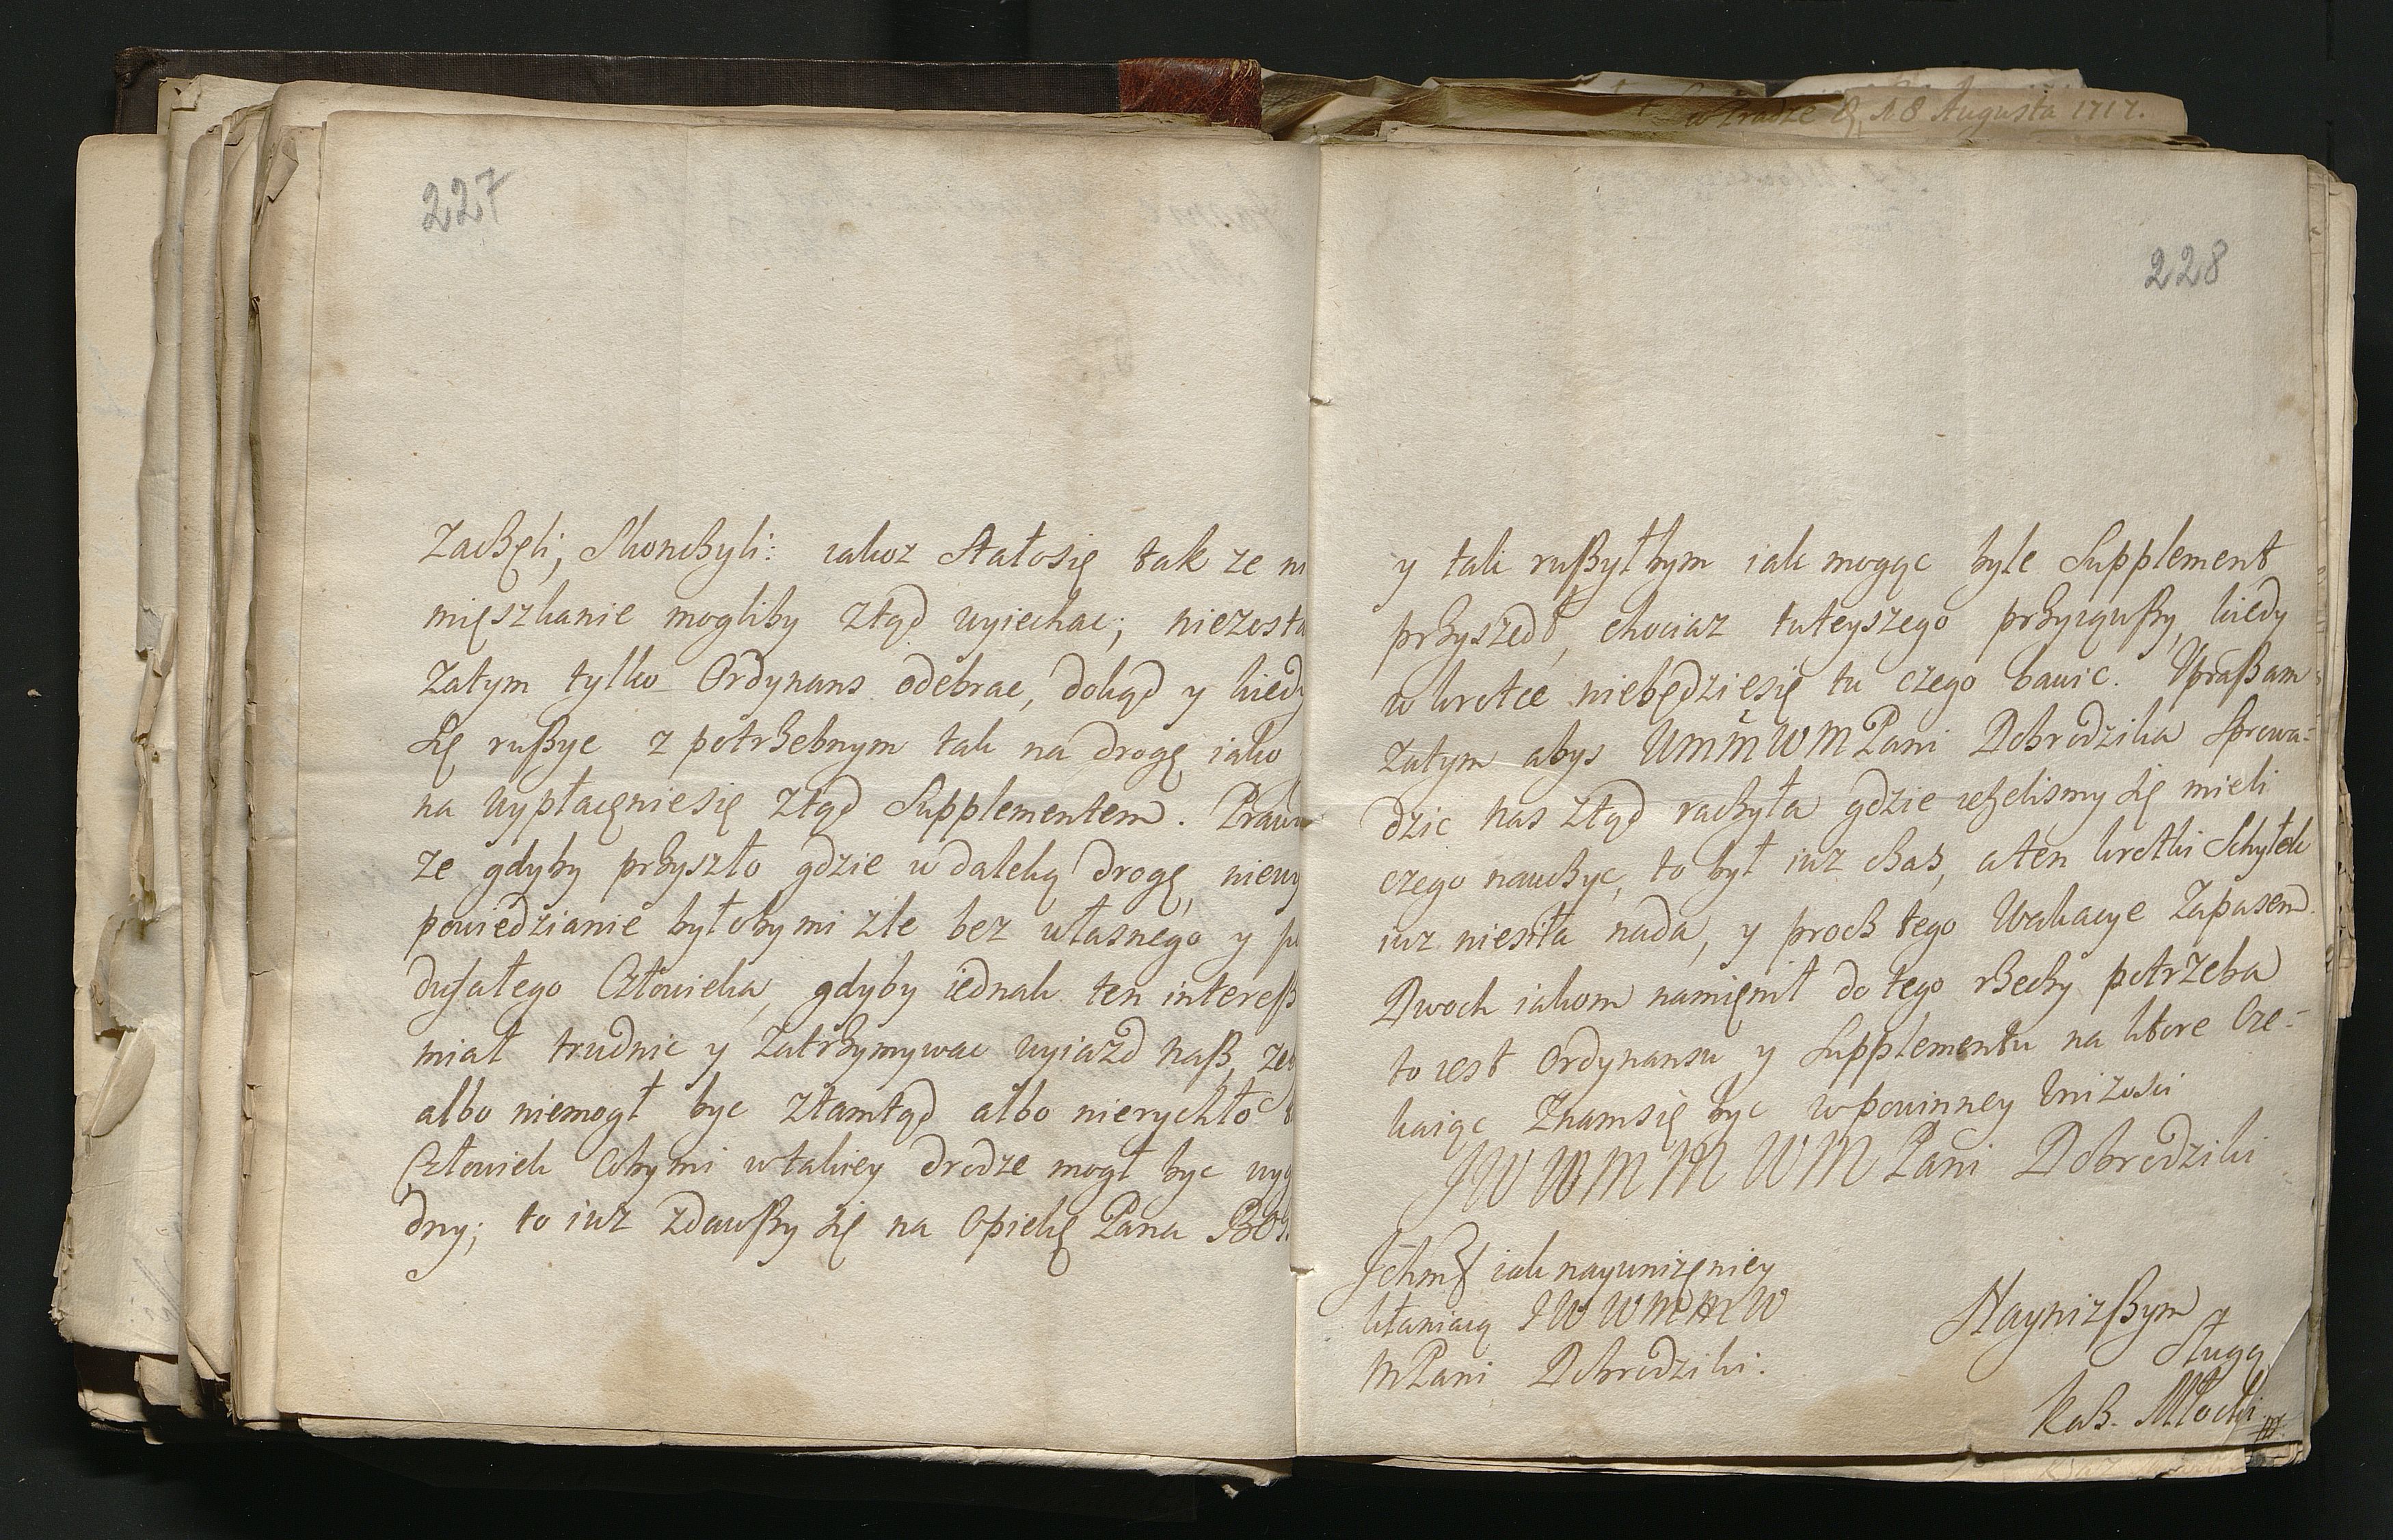 w Pradze D. 18 Augusta 1717.
227
Zaczęli, Skonczyli: iakoz Stałosię tak ze
mięszkanie mogliby ztąd wyiechac;
Zatym tylko Ordynans odebrac, dokąd y kiedy
Się rußyc z potrzebnym tak na drogę iako
na wypłacęniesię ztąd Supplementem.
ze gdyby przyszło gdzie w daleką drogę,
powiedzianie byłoby mi zle bez własnego y
dufałego Człowieka, gdyby iednak ten intereß
miał trudnic y Zatrzymywac wyiazd naß,
albo niemogł byc ztamtąd albo nierychło
Człowiek coby mi wtakiey drodze mogł byc
dny; to iuz zdawßy Się na Opiekę Pana
228
y tak rußyłbym iak mogąc byle Supplement
przyszedł, chociaz tuteyszego przyiąwßy, kiedy
w krotce niebędziesię tu czego bawic. Upraßam
Zatym abys WmMWMPani Dobrodzika Sprowa=
dzic nas ztąd raczyła gdzie iezelismy Się mieli
czego nauczyc, to był iuz czas, a ten krotki Schyłek
iuz niesiła nada, y procz tego Wakacye Zapasem.
Dwoch iakom namięnił do tego rzeczy potrzeba
to iest Ordynansu y Supplementu na ktore Cze=
kaiąc Znamsię byc wpowinney Unizosci
JWWMMWMPani Dobrodziki
Jchmć iak nayunizęniey
kłaniaią JWWMMW
MPani Dobrodziki.
Naynizßym
Sługą
Kaz. Młocki